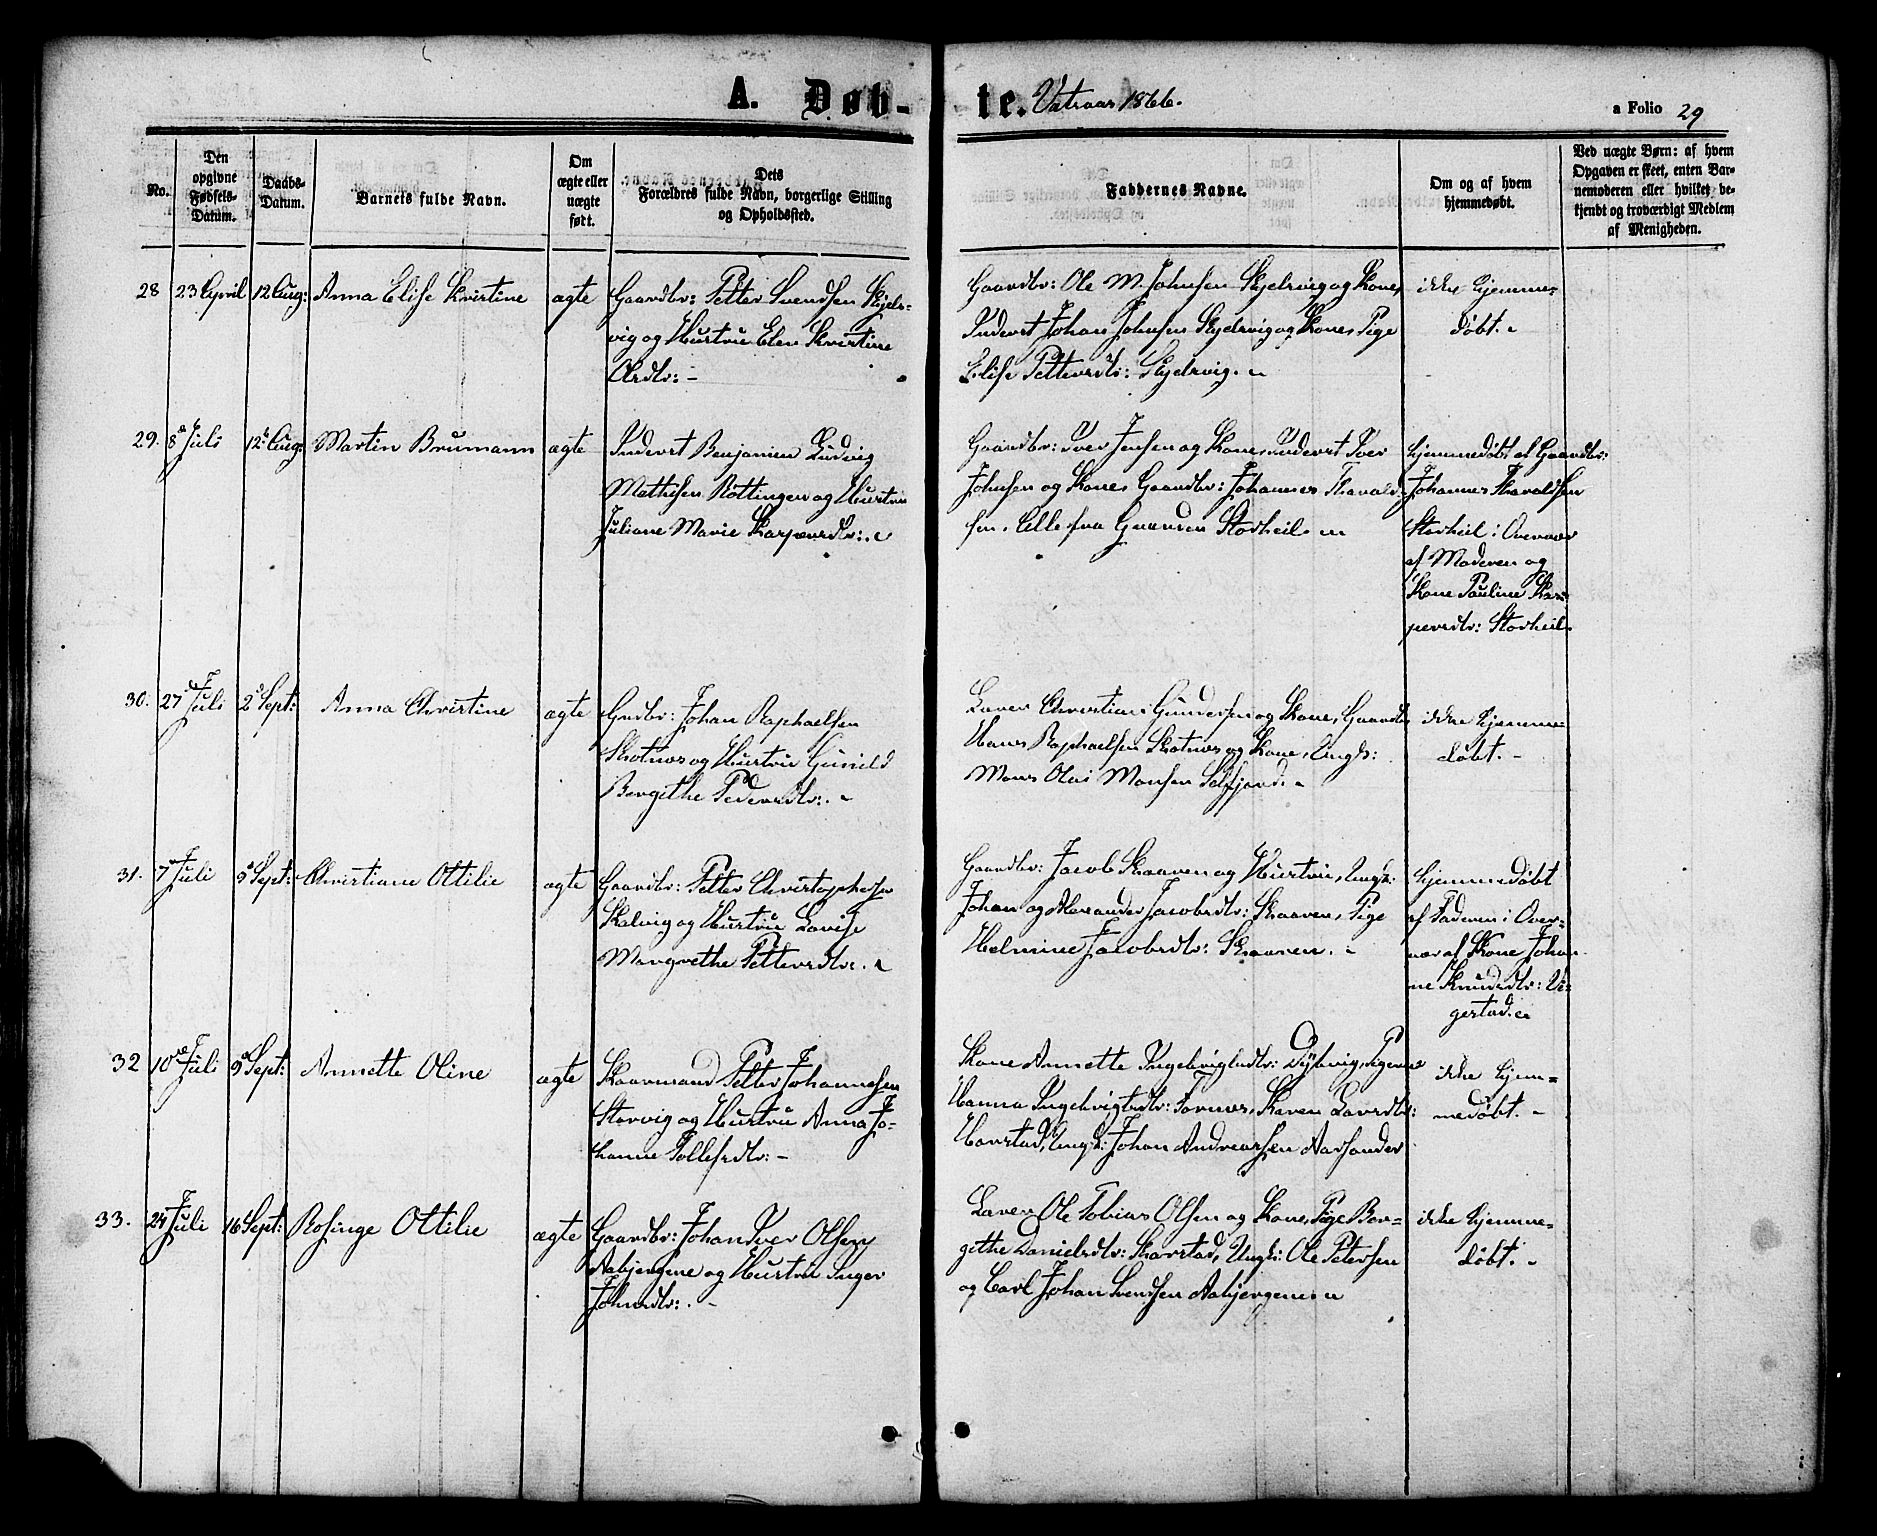 A. Døb-
te. Vatraas 1866.
a Folio 29
No.
Den
opgivne
Fødsels-
Datum.
Daabs-
Datum.
Barnets fulde Navn.
Om
ægte eller
uægte
født.
Dets
Forældres fulde Navn, borgerlige Stilling
og Opholdssted.
Faddernes Navne.
Om og af hvem
hjemmedøbt.
Ved uægte Børn: af hvem
Opgaven er skeet, enten Bar-
nemoderen eller hvilket be-
kjendt og troværdigt Medlem
af Menigheden.
28 23 April 12 Aug: Anna Elise Kristine ægte
Gaardbr: Petter Svendsen Skjels-
vig og Hustru Elen Kristine
Olsdtr: -
Gaardbr: Ole M. Johnsen Skjelsvig og Kone,
Inderst Johan Johnsen Skjelsvig og Kone, Pige
Elise Pettersdtr: Skjelsvig.
ikke hjemme-
døbt.
29. 8 Juli 12 Aug: Martin Brumann ægte
Inderst Benjamin Ludvig
Mathisen Røttingen og Hustru
Juliane Marie Kaspersdtr:.
Gaardbr: Iver Jensen og Kone, Inderst Iver
Johnsen og Kone, Gaardbr: Johannes Tharald-
sen. Alle fra Gaarden Storheil.
hjemmedøbt af Gaardbr:
Johannes Tharaldsen
Storheil i Overvær
af Moderen og
Kone Pauline Kas-
persdtr: Storheil.
30. 27 Juli 2 Sept: Anna Christine ægte
Gndbr: Johan Raphaelsen
Skotnes og Hustru Gunild
Bergithe Pedersdtr:.
Christian Gundersen og Kone, Gaardbr
Hans Raphaelsen Skotnes og Kone, Ungk:
Mons Olai Monsen Selfjord.
ikke hjemme-
døbt. -
31. 7 Juli 9 Sept: Christiane Ottilie ægte
Gaardbr: Petter Christophersen
Kalvig og Hustru Lovise
Margrethe Pettersdtr:.
Gaardbr: Jacob Skaaren og Hustru, Ungk:
Johan og Alexander Jacobsdtr: Skaaren, Pige
Helmine Jacobsdtr: Skaaren.
hjemmedøbt
af Faderen i Over-
vær af Kone Johan-
ne Knudsdtr: Ve-
gestad.
32 10 Juli 9 Sept: Annette Oline ægte
Petter Johannesen
Storvig og Hustru Anna Jo-
hanne Tollefsdtr: -
Kone Annette Ingebrigtsdtr: Dybvig, Pigerne
Hanna Ingebrigtsdtr: Fornes, Karen Larsdtr:
Harstad, Ungk: Johan Andreassen Aarsander
ikke hjem-
medøbt. -
33. 24 Juli 16 Sept: Rosinge Ottilie ægte
Gaardbr: Johan Iver Olsen
Aabjergene og Hustru Inger
Johnsdtr:. -
Ole Tobias Olsen og Kone, Pige Ber-
gethe Danielsdtr: Skarstad, Ungk: Ole Petersen
og Carl Johan Svendsen Aabjergene.
ikke hjemme-
døbt. -